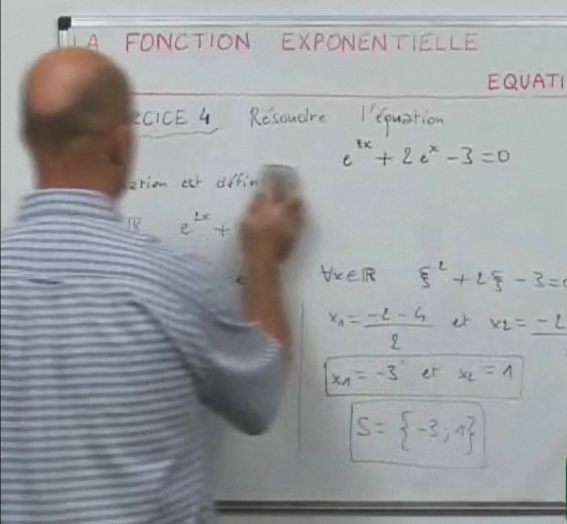 LA FONCTION EXPONENTIELLE
EQUATI
RCICE 4 Résoudre l'équation
e^2x + 2e^x - 3 = 0
ation est défin
ℝ e^2x +
e
∀x∈ℝ ξ^2 + 2ξ - 3 = 0
x1 = (-2 - 4)/2 et x2 = -2
x1 = -3 et x2 = 1
S = {-3; 1}